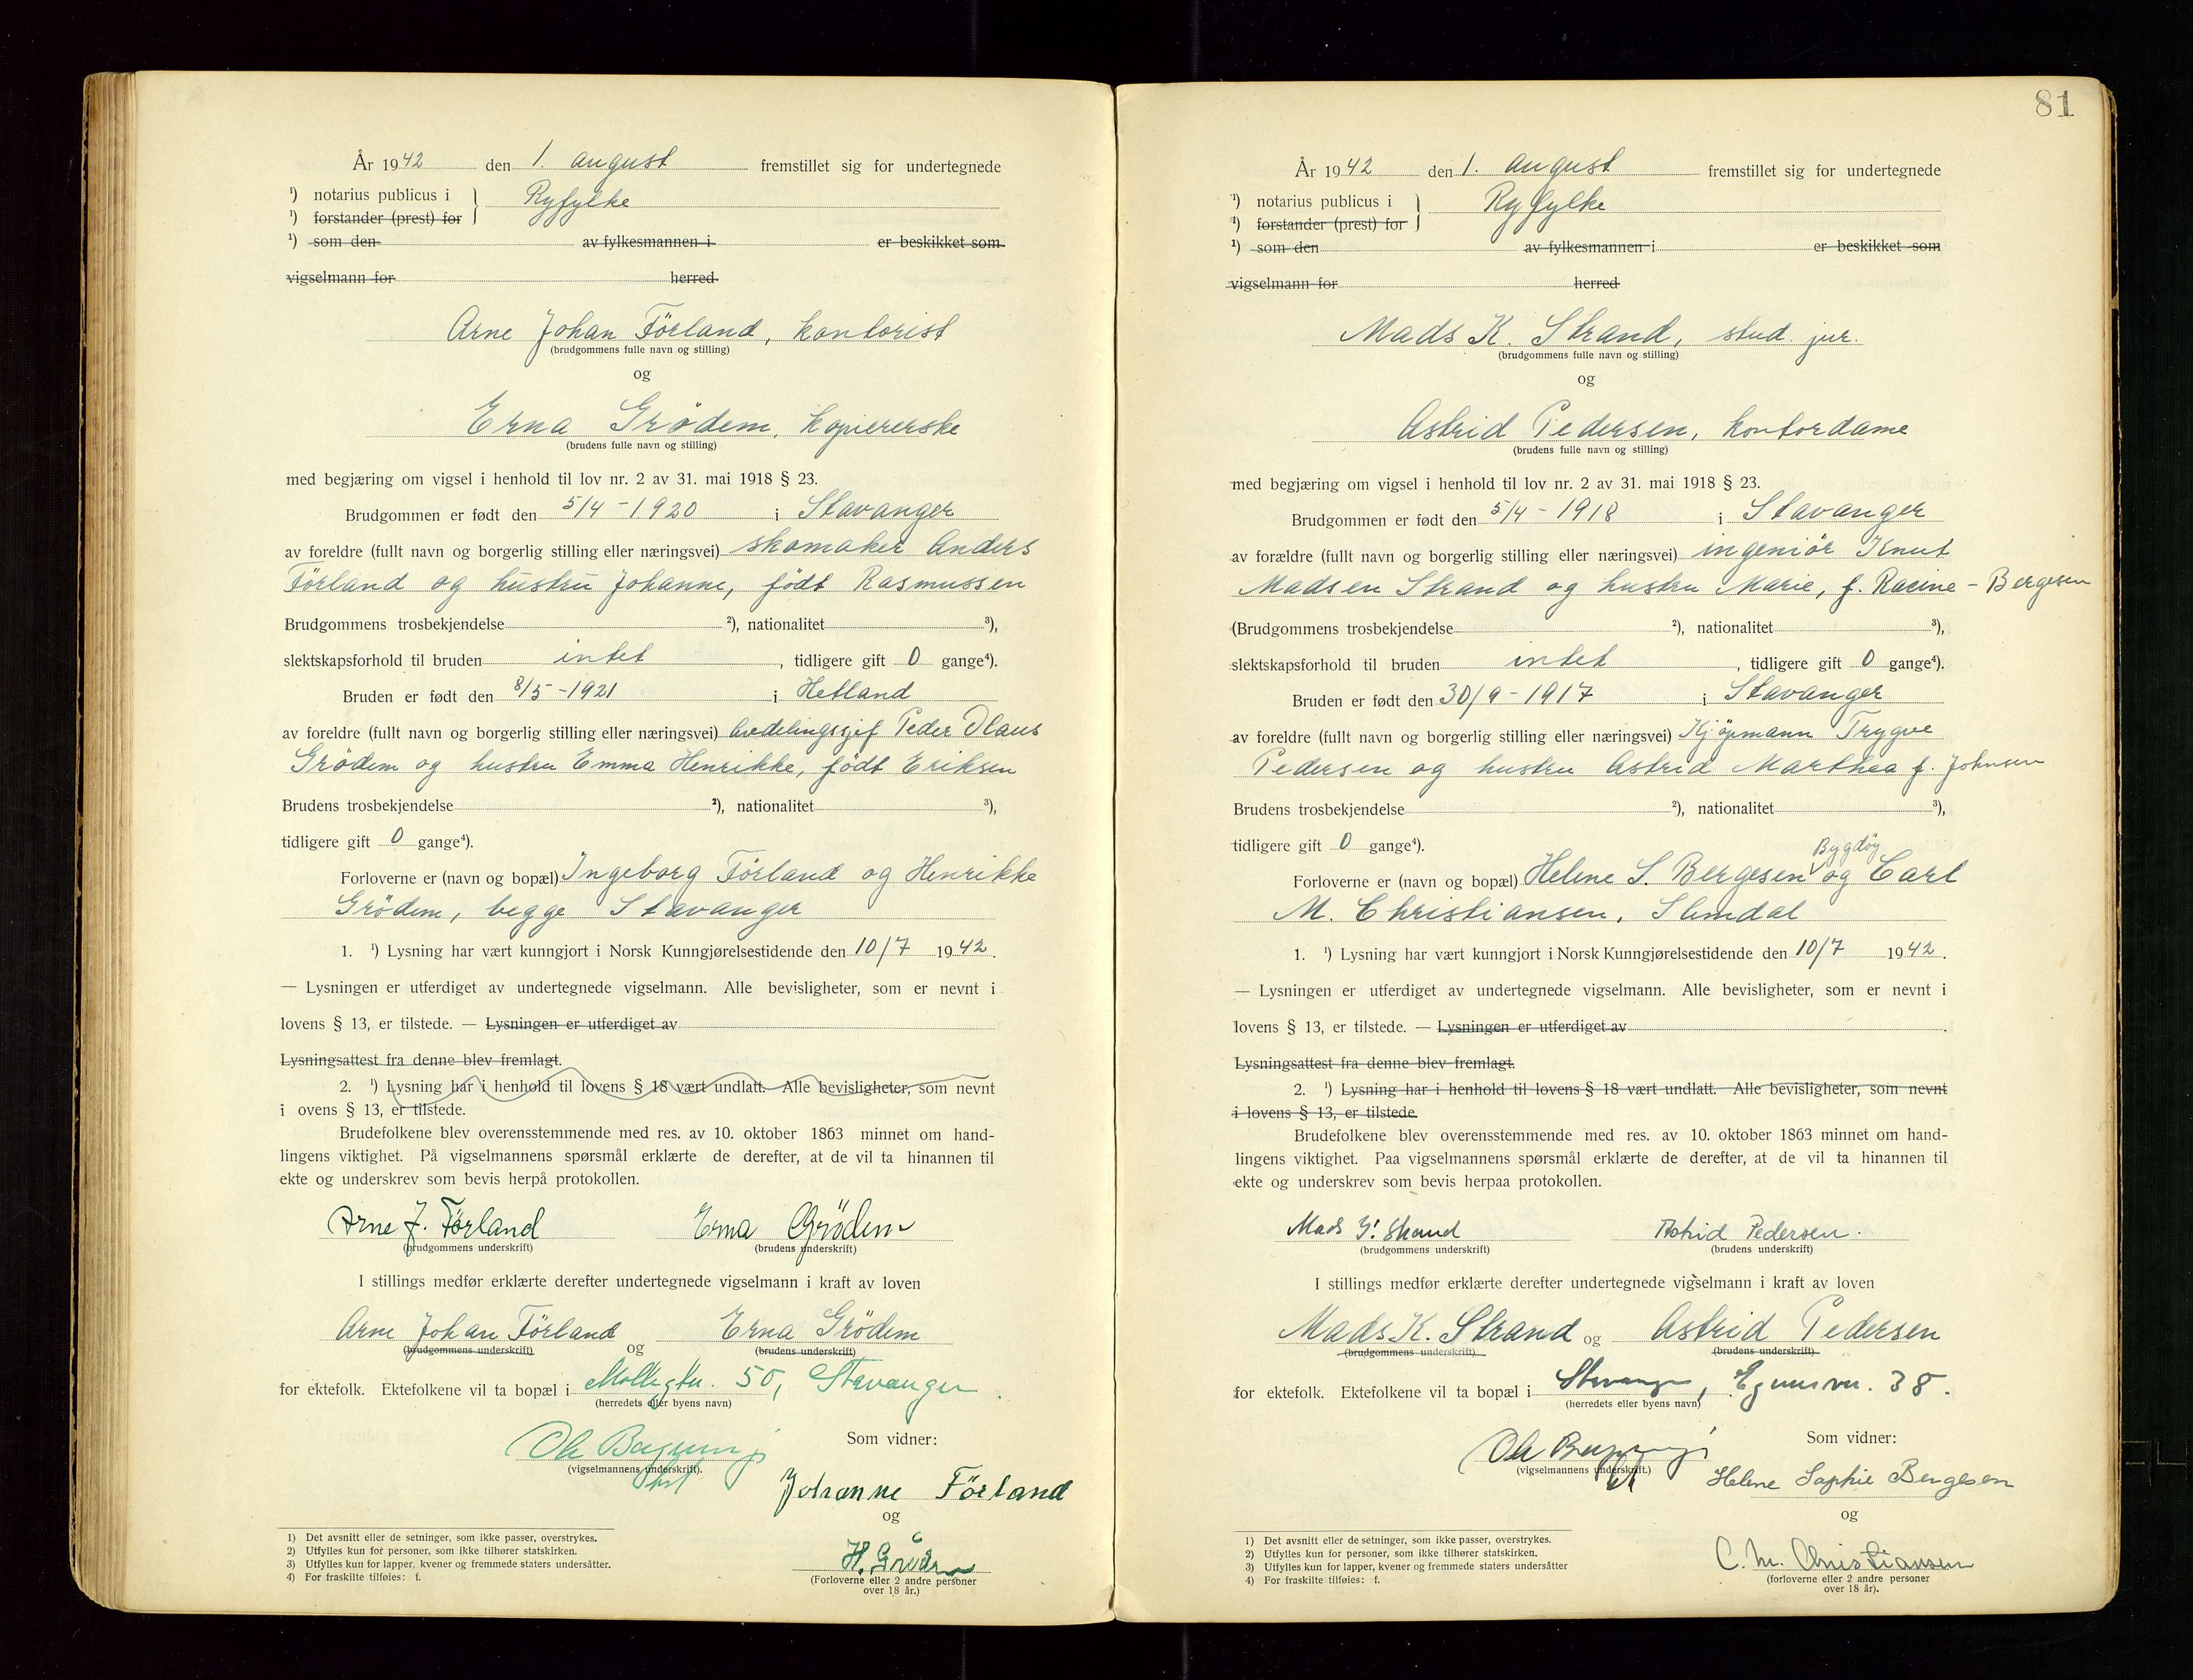 År 1942 den 1. august fremstillet sig for undertegnede
¹) notarius publicus i } Ryfylke
¹) forstander (prest) for
¹) som den av fylkesmannen i er beskikket som
vigselmann for herred
Arne Johan Förland, kontorist
(brudgommens fulle navn og stilling)
og
Erna Grödem, kopiererske
(brudens fulle navn og stilling)
med begjæring om vigsel i henhold til lov nr. 2 av 31. mai 1918 § 23.
Brudgommen er født den 5/4 - 1920 i Stavanger
av foreldre (fullt navn og borgerlig stilling eller næringsvei) skomaker Anders
Förland og hustru Johanne, født Rasmussen
Brudgommens trosbekjendelse ²), nationalitet ³),
slektskapsforhold til bruden intet, tidligere gift 0 gange⁴).
Bruden er født den 8/5 - 1921 i Hetland
av foreldre (fullt navn og borgerlig stilling eller næringsvei) avdelingssjef Peder Olaus
Grödem og hustru Emma Henrikke, født Eriksen
Brudens trosbekjendelse ²), nationalitet ³),
tidligere gift 0 gange⁴).
Forloverne er (navn og bopæl) Ingeborg Förland og Henrikke
Grödem, begge Stavanger
1. ¹) Lysning har vært kunngjort i Norsk Kunngjørelsestidende den 10/7 1942.
— Lysningen er utferdiget av undertegnede vigselmann. Alle bevisligheter, som er nevnt i
lovens § 13, er tilstede. — Lysningen er utferdiget av
Lysningsattest fra denne blev fremlagt.
2. ¹) Lysning har i henhold til lovens § 18 vært undlatt. Alle bevisligheter, som nevnt
i ovens § 13, er tilstede.
Brudefolkene blev overensstemmende med res. av 10. oktober 1863 minnet om hand-
lingens viktighet. På vigselmannens spørsmål erklærte de derefter, at de vil ta hinannen til
ekte og underskrev som bevis herpå protokollen.
Arne J. Förland Erna Grödem
(brudgommens underskrift) (brudens underskrift)
I stillings medfør erklærte derefter undertegnede vigselmann i kraft av loven
Arne Johan Förland og Erna Grödem
(brudgommens underskrift) (brudens underskrift)
for ektefolk. Ektefolkene vil ta bopæl i 50, Stavanger
(herredets eller byens navn)
Som vidner:
(vigselmannens underskrift).
Johanne Förland
og
H. Grödem
(Forloverne eller 2 andre personer
over 18 år.)
1) Det avsnitt eller de setninger, som ikke passer, overstrykes.
2) Utfylles kun for personer, som ikke tilhører statskirken.
3) Utfylles kun for lapper, kvener og fremmede staters undersåtter.
4) For fraskilte tilføies: f.
81
År 1942 den 1. august fremstillet sig for undertegnede
¹) notarius publicus i } Ryfylke
¹) forstander (prest) for
¹) som den av fylkesmannen i er beskikket som
vigselmann for herred
Mads K. Strand, stud. jur.
(brudgommens fulle navn og stilling)
og
Astrid Pedersen, kontordame
(brudens fulle navn og stilling)
med begjæring om vigsel i henhold til lov nr. 2 av 31. mai 1918 § 23.
Brudgommen er født den 5/4 - 1918 i Stavanger
av forældre (fullt navn og borgerlig stilling eller næringsvei) ingeniör Knut
Madsen Strand og hustru Marie, f. Racine - Bergesen
(Brudgommens trosbekjendelse ²), nationalitet ³),
slektskapsforhold til bruden intet, tidligere gift 0 gange⁴).
Bruden er født den 30/9 - 1917 i Stavanger
av foreldre (fullt navn og borgerlig stilling eller næringsvei) Kjöpmann Trygve
Pedersen og hustru Astrid Marthea f. Johnsen
Brudens trosbekjendelse ²), nationalitet ³),
tidligere gift 0 gange⁴).
Bygdöy
Forloverne er (navn og bopæl) Helene S. Bergesen og Carl
M. Christiansen, Slemdal
1. ¹) Lysning har vært kunngjort i Norsk Kunngjørelsestidende den 10/7 1942.
— Lysningen er utferdiget av undertegnede vigselmann. Alle bevisligheter, som er nevnt i
lovens § 13, er tilstede. — Lysningen er utferdiget av .
Lysningsattest fra denne blev fremlagt.
2. ¹) Lysning har i henhold til lovens § 18 vært undlatt. Alle bevisligheter, som nevnt
i lovens § 13, er tilstede.
Brudefolkene blev overensstemmende med res. av 10. oktober 1863 minnet om hand-
lingens viktighet. Paa vigselmannens spørsmål erklærte de derefter, at de vil ta hinannen til
ekte og underskrev som bevis herpaa protokollen.
Mads K. Strand Astrid Pedersen.
(brudgommens underskrift) (brudens underskrift)
I stillings medfør erklærte derefter undertegnede vigselmann i kraft av loven
Mads K. Strand og Astrid Pedersen
(brudgommens underskrift) (brudens underskrift)
for ektefolk. Ektefolkene vil ta bopæl i Stavanger, 38.
(herredets eller byens navn)
Som vidner:
(vigselmannens underskrift.)
Helene Sophie Bergesen
og
C. M. Christiansen
(forloverne eller 2 andre personer
over 18 år).
1) Det avsnitt eller de setninger, som ikke passer, overstrykes.
2) Utfylles kun for personer, som ikke tilhører statskirken.
3) Utfylles kun for lapper, kvener og fremmede staters undersåtter
4) For fraskilte tilføies: f.